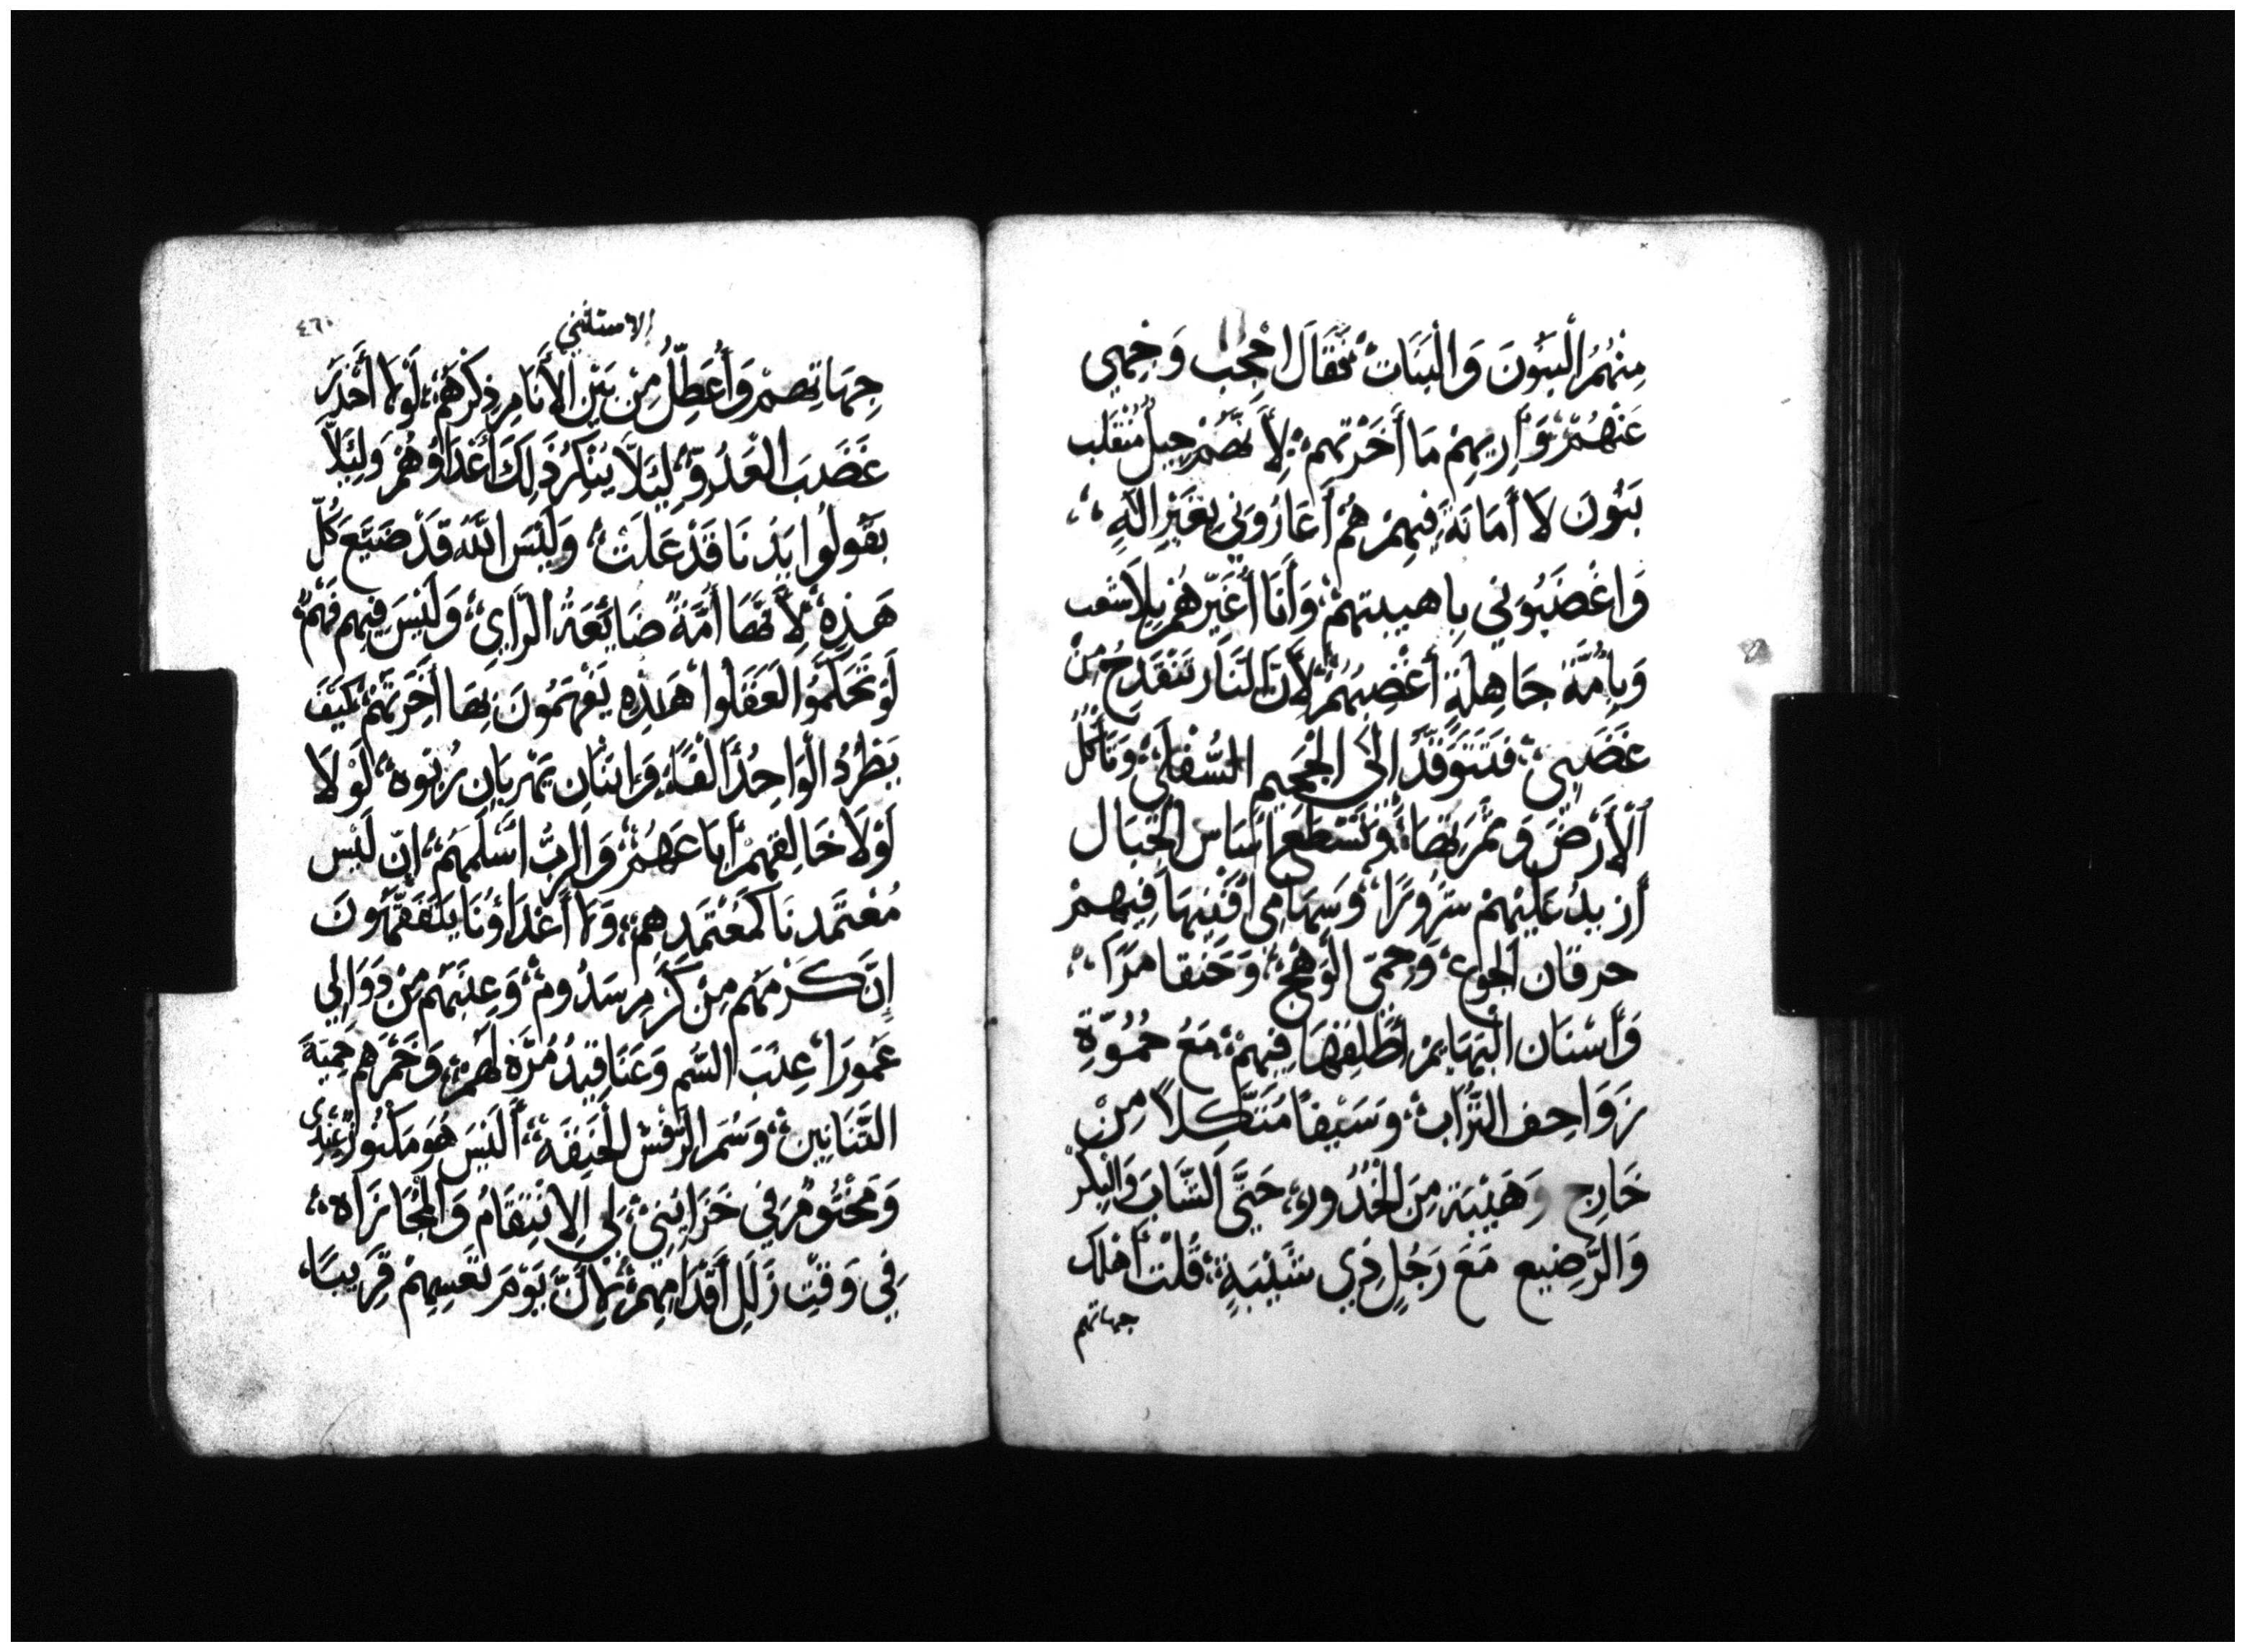 مِنْهُمُ الْبَنُونَ وَالْبَنَاتُ فَقَالَ احْجِب وَجْهِى
عَنْهُمْ وَأُرِيهِمْ مَا أَخَرْتَهِمْ لِأَنَّهُمْ جِيلُ مُنْقَلب
بَنُونَ لَا أَمَانَةَ فِيهِمْ هُمْ أَغَارُونِي بِغَيْرِ الَهٍ
وَاغْضَبُونِي بِاهيبتهِمْ وَأَنَا أُغَيِّرُهُمْ بِلاَ شعب
وَبِأُمَّةٍ جَاهِلَةٍ أُغْضِبُهُمْ لِأَنَّ النَارَ تَنْقَدِحُ مِنْ
غَضَبِى فَتَتَوَقَّدُ إِلَى الْجَحِيمِ السُّفْلَى وَتَأكُلُ
الْأَرْضَ وَثَمَرَتَهَا وَتَسْطَعُ اسَاسَ الجِبَال
أَزِيدُ عَلَيْهِمْ شَرُورًا وَسِهَامِى أُفْنِيهَا فِيهِمْ
حرقان الجوع وَحِمَى الْوَهْجُ وَحَنقا مَرًا
وَأَسْنَان الْبَهَايِمْ أُطْلِقُهَا فِيهِمْ مَعُ حُمُوَّةِ
زَوَاحِف التُرَابِ وَسَيْفًا مُتَنَّكِلاً مِنْ
خَارِج وَهَيْبَة مِنَ الْخُدُورِ حَتَّى الشَّابَ وَالْبِكْرْ
وَالرَّضِيع مَعَ رَجُلٍ ذِي شَيْبَةٍ قُلْتُ أُهْلك
جهاتهم
الاستثني
٤٦٠
جِهَاتِهِمْ وَأُعَطِّلُ مِنْ بَيْنِ الْأَنَامِ ذِكْرَهُمْ لَوْمَا أَحْذَرَ
غَضَبَ الْعَدُوّ لِيَلَا يَتْكِرُ ذَلِكَ أَعْدَاؤُهُمْ وَلِيَلاَّ
يَقُولُوا يَدُنَا قَدْ عَلَتْ وَلَيْسَ اللَّهُ قَدْ صَنَعَ كُلّ
هَذِهِ لِأَنَّهَا أُمَّةً ضَايُعَةُ الرَّأيِ وَلَيْسَ فِيهِم فَهْمٌ
لَوْ تَحَكَّمُوا لَعَقَلُوا هَذِهِ يَفْهَمُونَ بِهَا أَخِرَتَهُمْ كَيْفَ
يَطْرُدُ الْوَاحِدُ أَلْفًا وَاثنَانِ يَهْرِبَانِ رُبْوه لَوْلَا
لَوْلَا خَالِقهِمْ ابَاعَهُمْ وَالرَبُّ اسْلَمَهُمْ اِنّ لَيْس
مُعْتَمَدنَا كَمُعْتَمَدِهِم وَمَا أَعْدَاؤُنَا يَتَفَقَّهُونَ
اِنَّ كَرْمَهُم مِنْ كَرْمِ سَدُومْ وَعِنَبَهُم مِنْ دَوَالِي
عَمُورَا عِنَبَ السُّم وَعَنَاقِيدُ مُرَّة لَهُمْ وَخَمْرَهُم حِمِيَةَ
التَّنَانِين وَسُمّ الرَّقْش الْحَنِقَة أَلَيْسَ هُوَ مَكْنُوزٌ عِنْدِى
وَمَخْتُومٌ فِي خَزَايِنِي لِي الاِنْتِقَامُ وَالْمُجَازَاه
فِي وَقْتِ زَلَلِ أَقْدَامِهِمْ لِأَنَّ يَوْمَ تَعْسِهِمْ قَرِيبًا